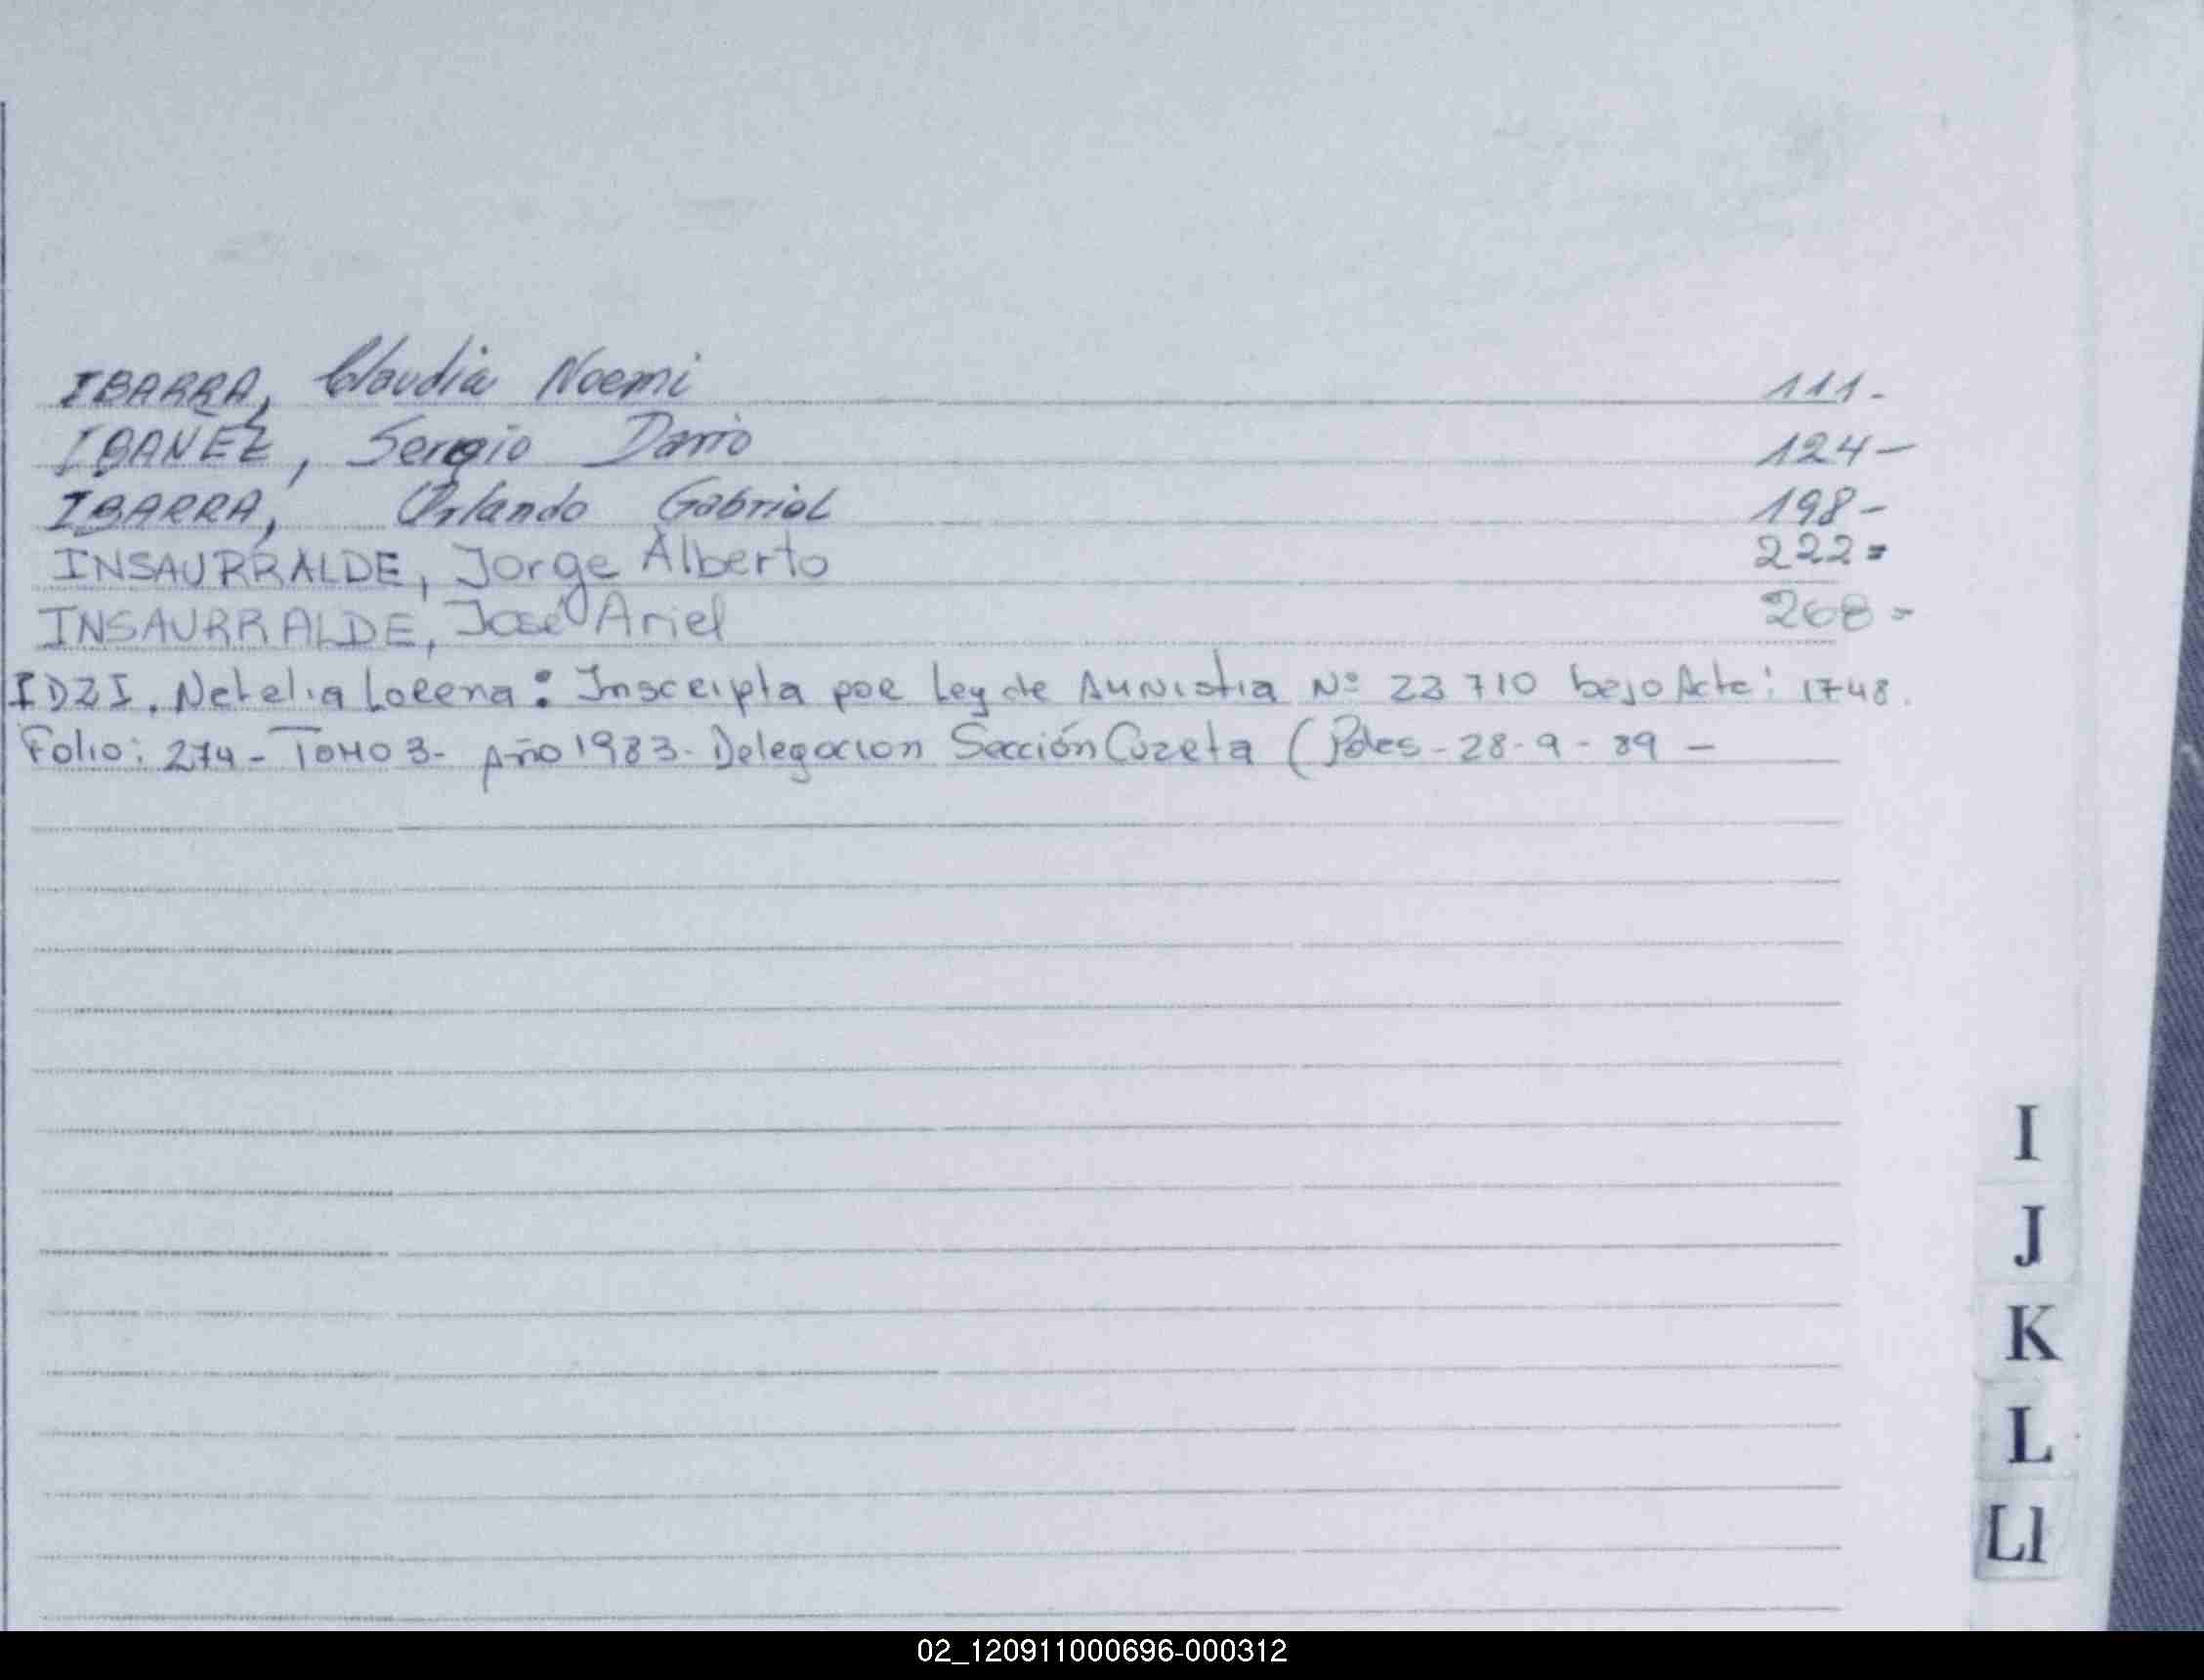 IBARRA, Claudia Noemi 111-
IBAÑEZ, Sergio Dario 124-
IBARRA, Orlando Gabriel 198-
INSAURRALDE, Jorge Alberto 222=
INSAURRALDE, José Ariel 268=
IDZI, Natalia Lorena: Inscripta por Ley de Amnistia Nº 23710 bajo Acta: 1748.
Folio: 274- Tomo 3- Año 1983- Delegacion Sección (Pdes-28-9-89-
I
J
K
L
Ll
02_120911000696-000312